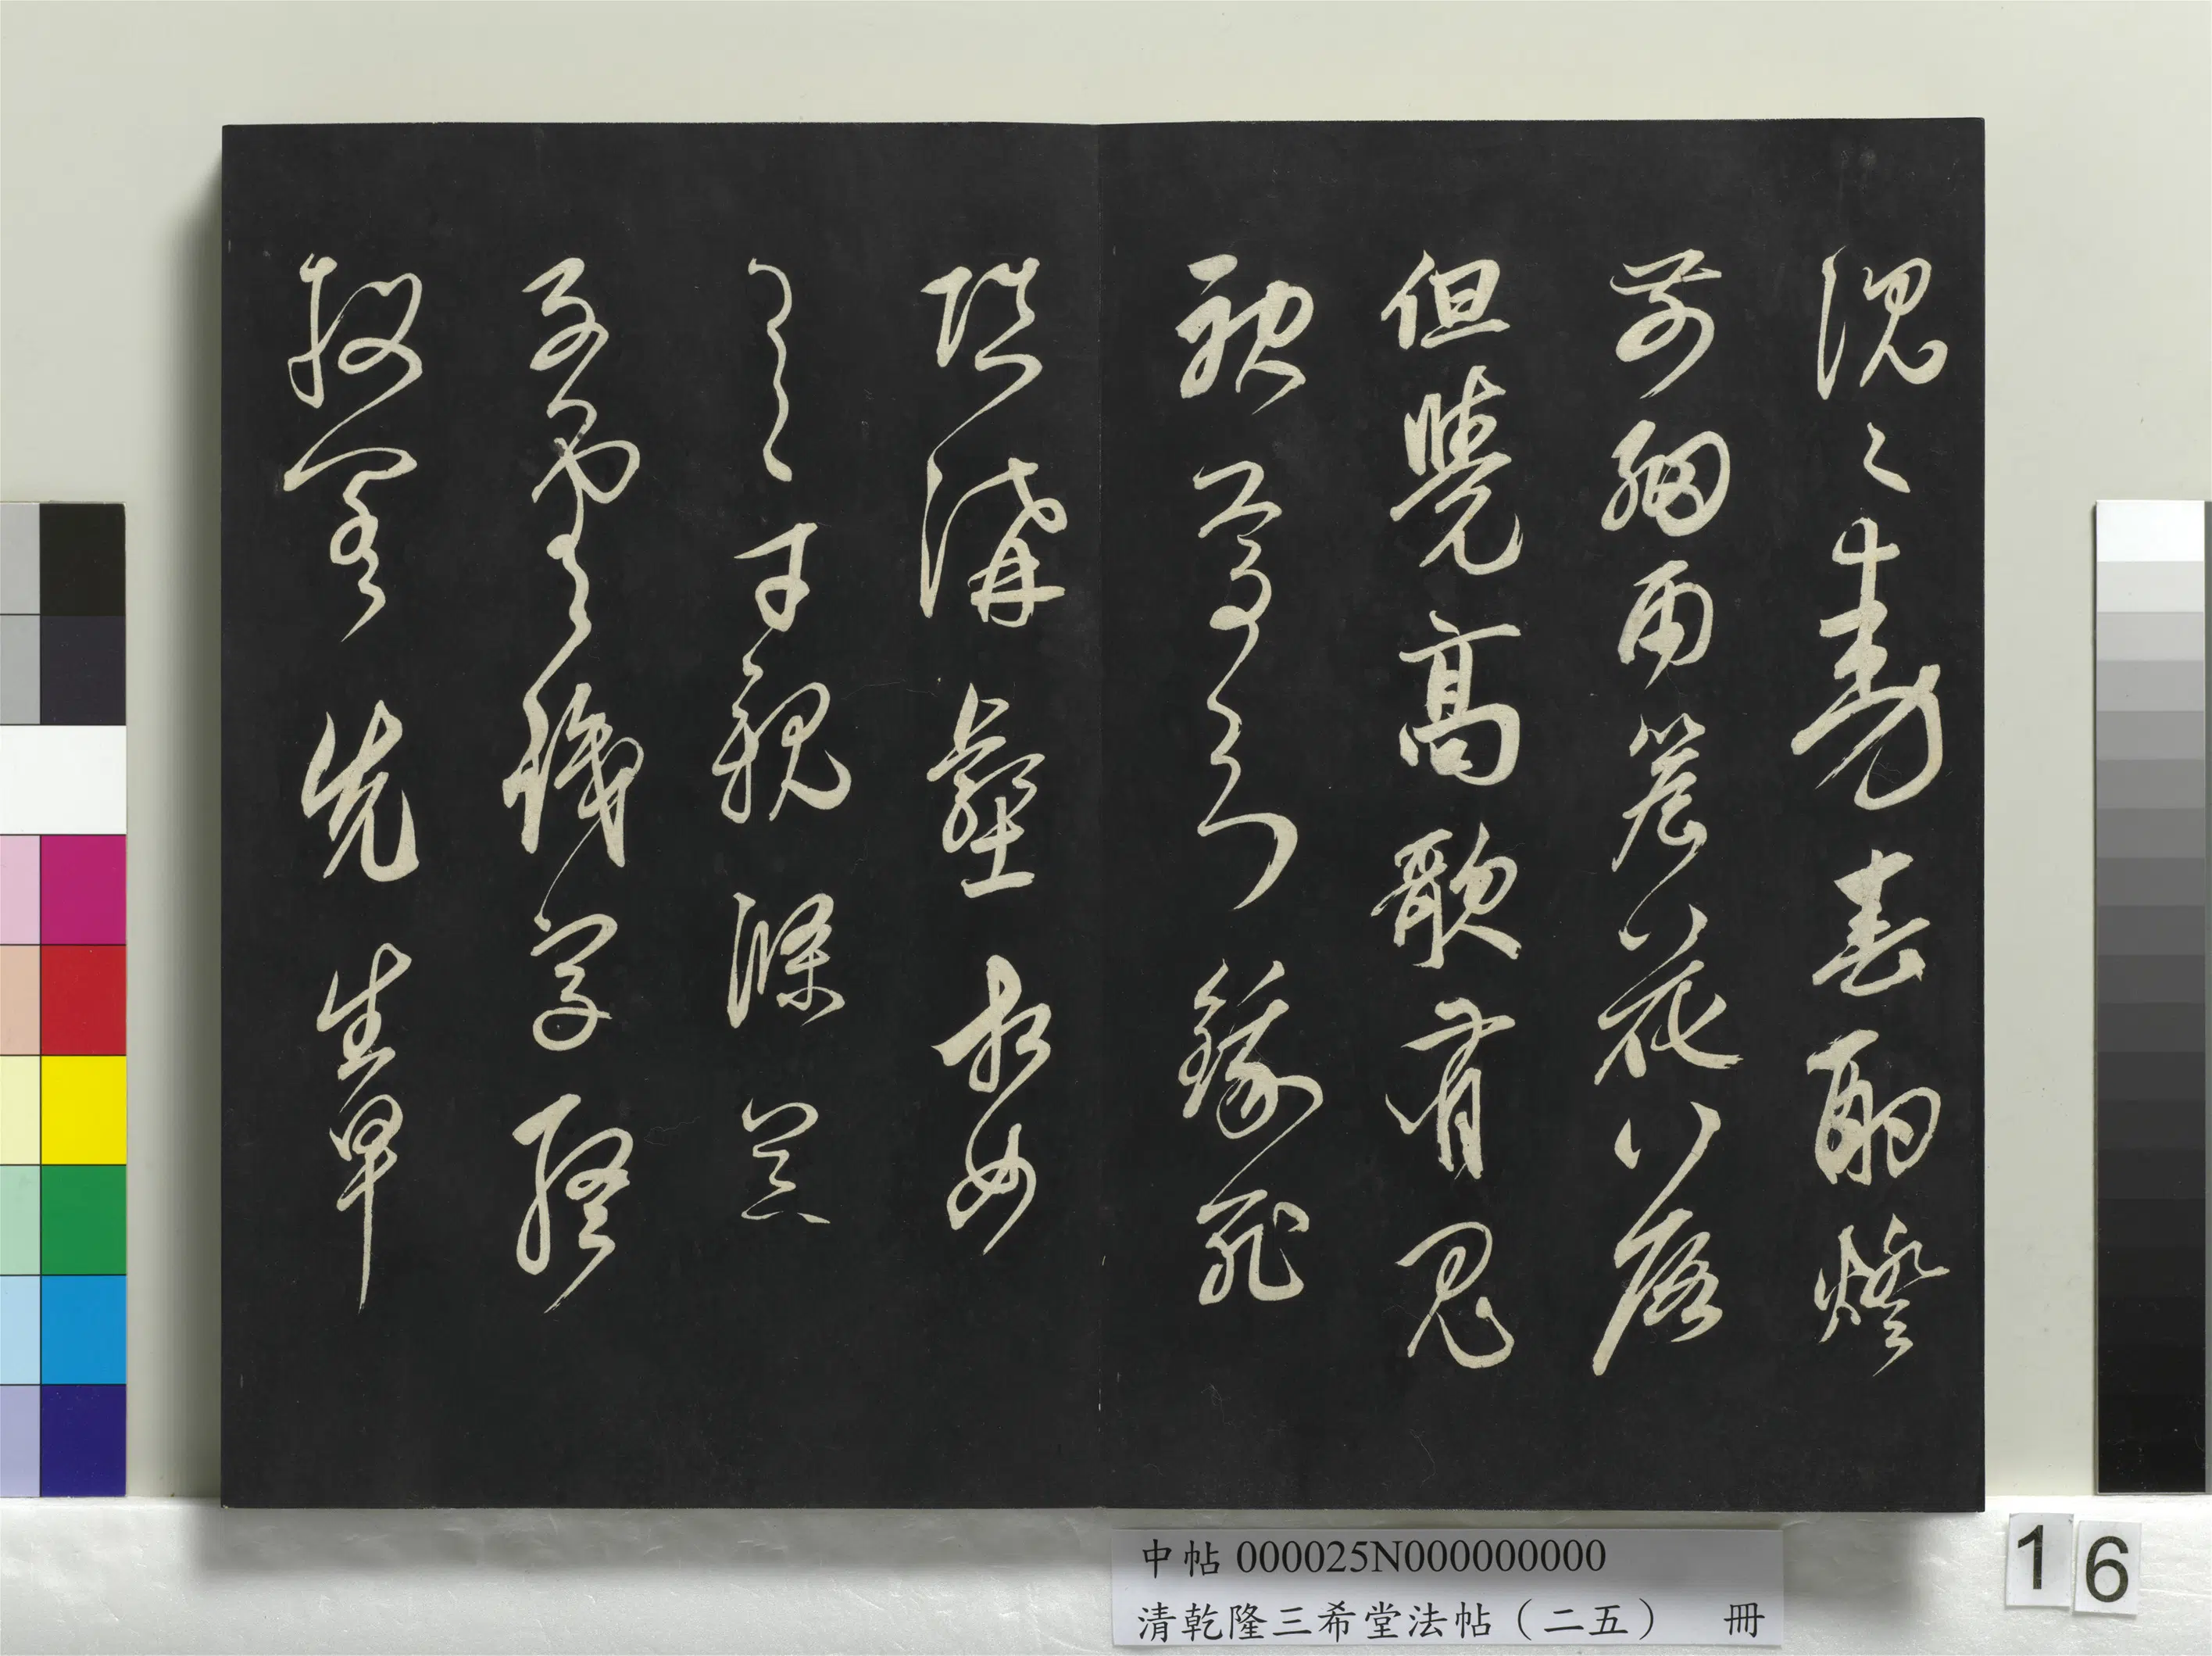 沉々動春酌燈
前細雨簷花落
但覺高歌有鬼
神焉知餓死
填溝壑相如
逸才親滌器
子雲識字終
投閣先生早
中帖000025N000000000
清乾隆三希堂法帖（二五） 冊
16